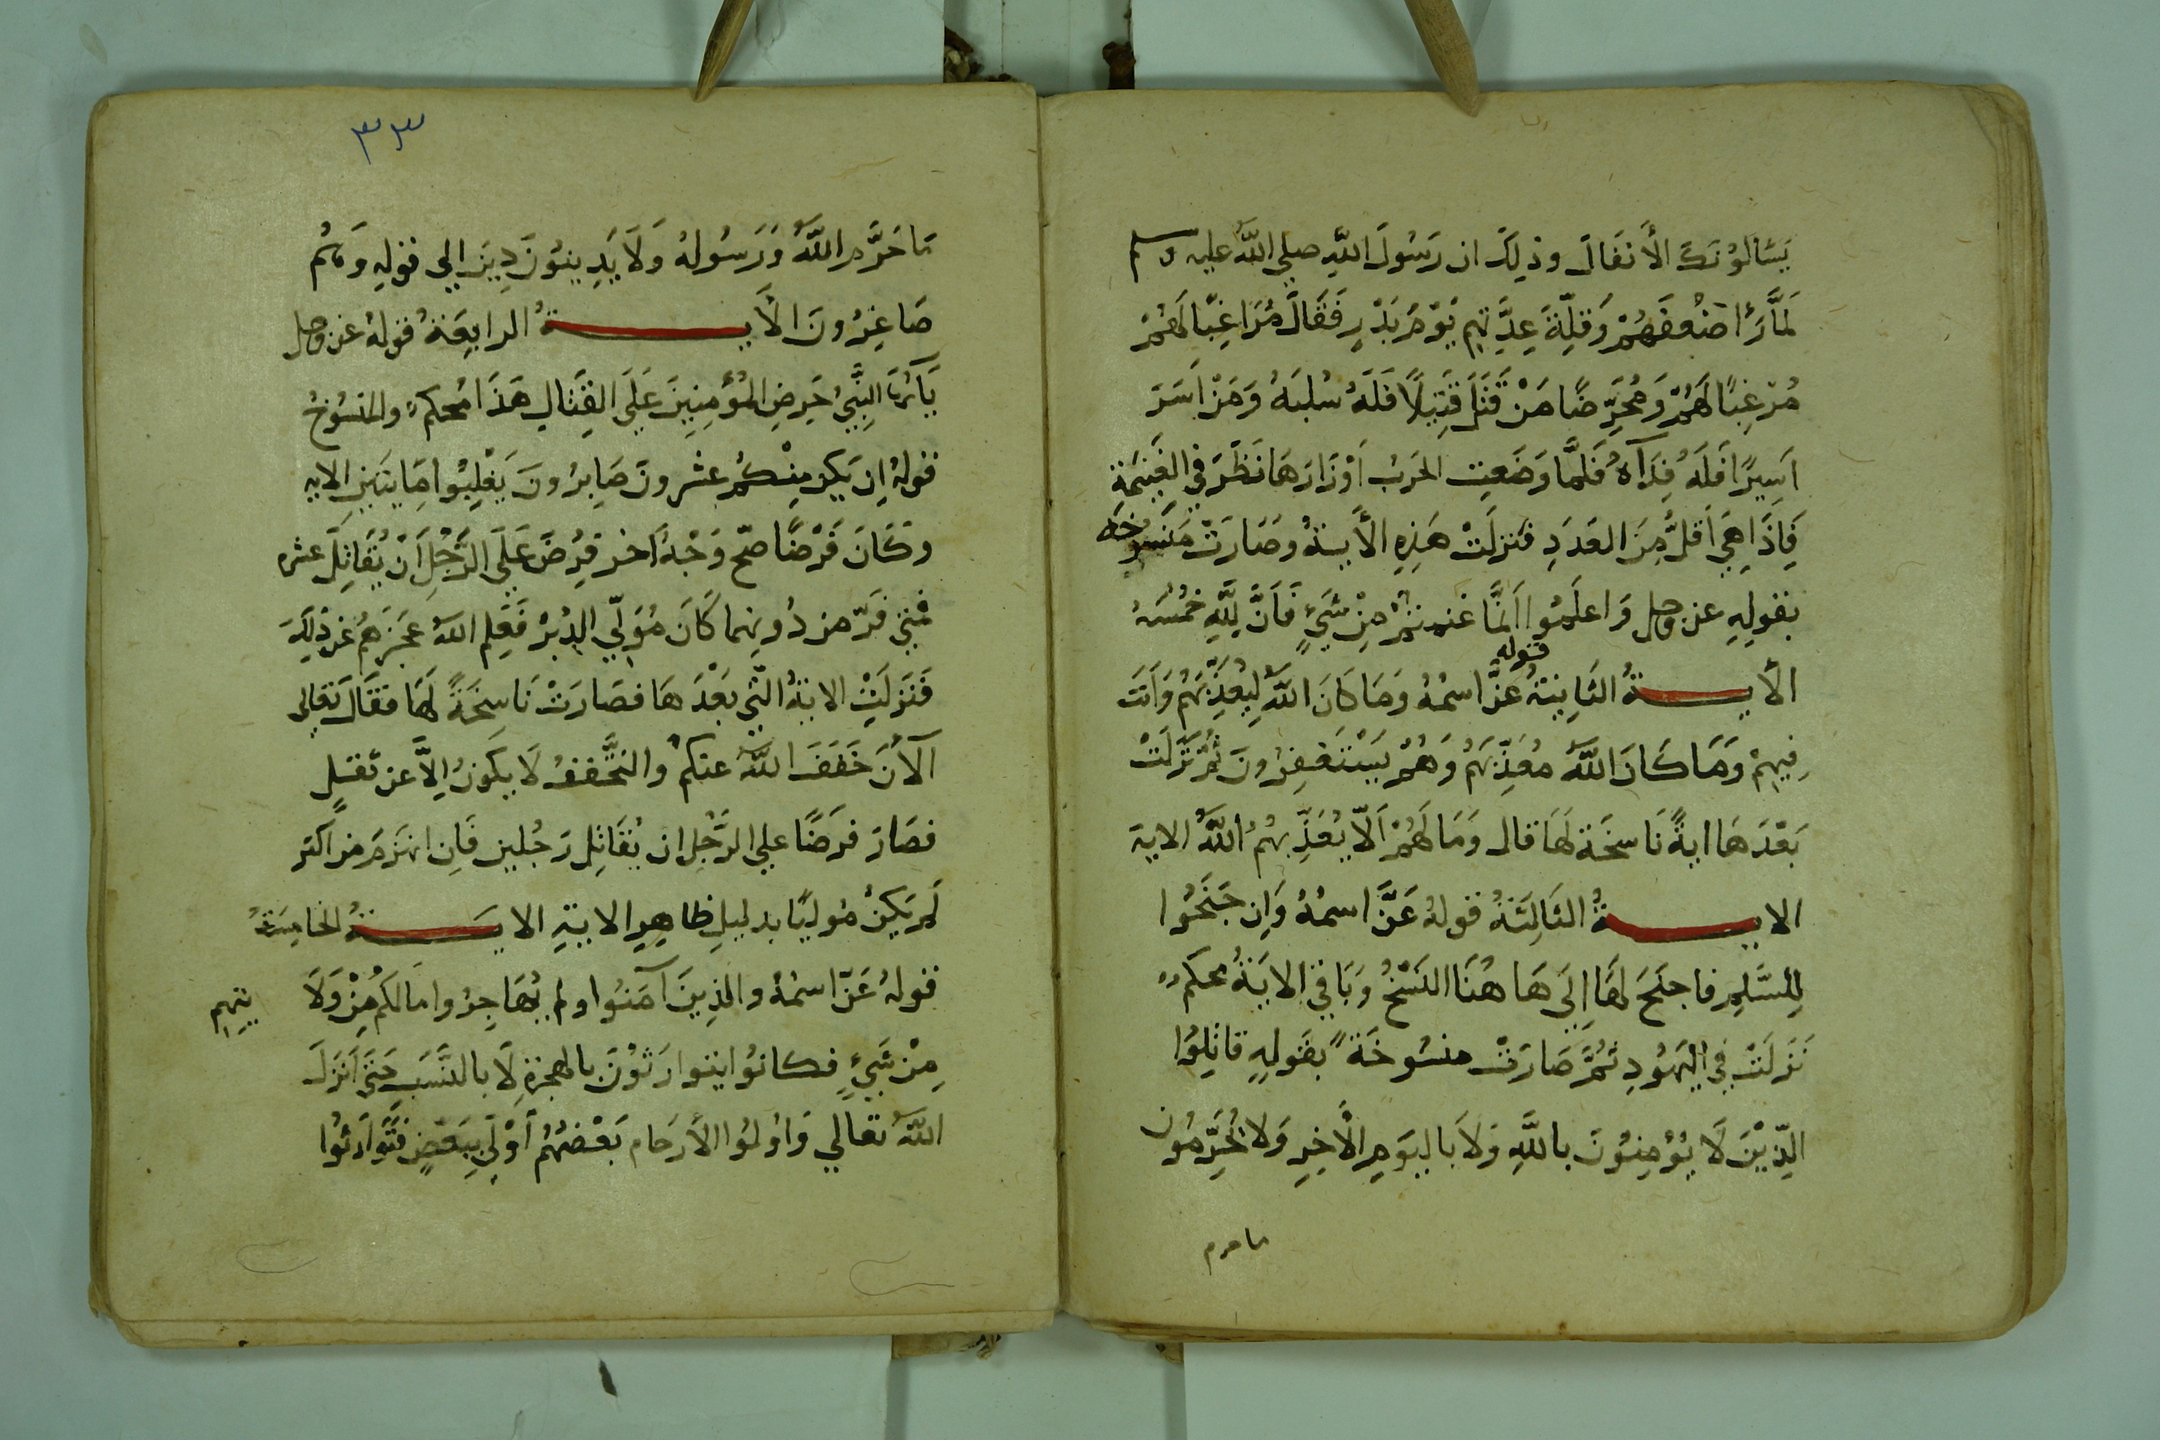 يَسْألُونَكَ الأَنفَال وذلِكَ ان رَسُولَ اللَّهِ صلي اللَّهُ عليه وسلم
لَمَّا رَأَا ضَعفَهُمْ وَقِلّةَ عِدَّتِهِم يَوْمَ بَدْرٍ فَقَالَ مُرَاغِبًا لَهُمْ
مُرْغِبًا لَهُمْ وَمُحَرِّضًا مَنْ قَتَلَ قَتِيلًا فَلَهُ سُلبَهُ وَمَنْ اَسَرَ
اَسِيرًا فَلَهُ فِدَآهُ فَلَمَّا وَضَعتِ الحَربُ اَوْزَارَهَا نَظَرَ فِي الغَنِيمَةِ
فَإِذَا هِيَ اَقلُّ مِنَ العَدَدِ فنزلَتْ هَذِهِ الأَيةُ وَصَارَتْ مَنسُوخَه
بقولِهِ عز وجل وَاعلَمُوا اَنَّمَا غنِمتُمْ مِنْ شَيْءٍ فَاَنَّ لِلَّهِ خمُسَهُ
الأيـــةُ الثَانِيَةُ قوله عَزَّ اسمُهُ وَمَا كَانَ اللَّهُ لِيُعَذِّبَهُم وَاَنتَ
فِيهِمْ وَمَا كَانَ اللَّهُ مُعَذِّبَهُم وَهُمْ يَسْتَغفِرُونَ ثُمَّ نَزَلَتْ
بَعْدَهَا ايةً نَاسخَة لهَا قال وَمَا لَهُمْ اَلّا يُعَذِّبهُمُ اللَّهُ الاية
الايـــةُ الثَالِثَةُ قولهُ عَزَّ اسمُهُ وَاِن جَنَحُوا
لِلسَّلمِ فاجنَح لهَا اِلَى هَاهُنَا النَسْخُ وَبَاقي الايَةُ محكمٌ
نَزَلَتْ فِي اليَهُودِ ثمَّ صَارَتْ منسُوخَةً بقَولِهِ قاتِلُوا
الَّذِيْنَ لَا يُؤمِنُونَ باللَّهِ وَلَا باليَومِ الْأَخِرِ وَلا يُحَرِّمُون
ما حرم
٣٣
مَا حَرَّم اللَّهُ وَرَسُولهُ وَلَا يَدِينُونَ دِينَ الي قولِهِ وَهُم
صَاغِرُونَ الأَيـــةُ الرابِعَة قولهُ عز وجل
يَآيُّهَا النَّبِيُّ حَرِضِ المُؤمِنِينَ عَلَى القِتَالِ هَذَا مُحكمٌ والمنسُوخُ
قولهُ اِن يَكن مِنكُم عشرونَ صَابِرُونَ يَغْلِبُوا مِايتَينِ الايه
وكَانَ فَرْضًا صَحّ وَجْهٌ اَخر فرُضَ عَلَى الرَّجُلِ اَنْ يُقَاتِلَ عشره
فمَتي فَرّ من دُونِهما كَانَ مُوَلّي الدُبُرْ فَعَلِم اللهُ عَجزَهُمْ عَن ذَلِكَ
فَنَزلَتِ الايَةُ التّي بَعْدَهَا فَصَارَتْ نَاسِخَةً لَهَا فقَالَ تَعَالى
آلأَنَ خَفَفَ اللَّهُ عنكُم والتخَفّفُ لَا يكونُ اِلاَّ عن ثقلٍ
فصَارَ فرَضًا علي الرَّجُلِ ان يُقَاتِلَ رَجُلَينِ فَاِنِ انهَزَمَ من اكثر
لَم يَكُنْ مُوليًا بدليلِ ظاهِرِ الايةِ الايـــةُ الخامِسَةُ
قولهُ عَزّ اسمُهُ والذِينَ آمَنُوا ولم يُهَاجِرُوا مَا لكُم مِنْ وَلَا
يتهم
مِنْ شَيْءٍ فكانوُا يتوارَثُوْنَ بالهِجرَةِ لَا بالنَّسَبِ حَتَّى اَنْزَلَ
اللَّهُ تعَالي وَاوُلوُا الأَرحَام بَعْضُهُمْ اَوْلَى بِبَعْضٍ فَتَوَارَثُوا